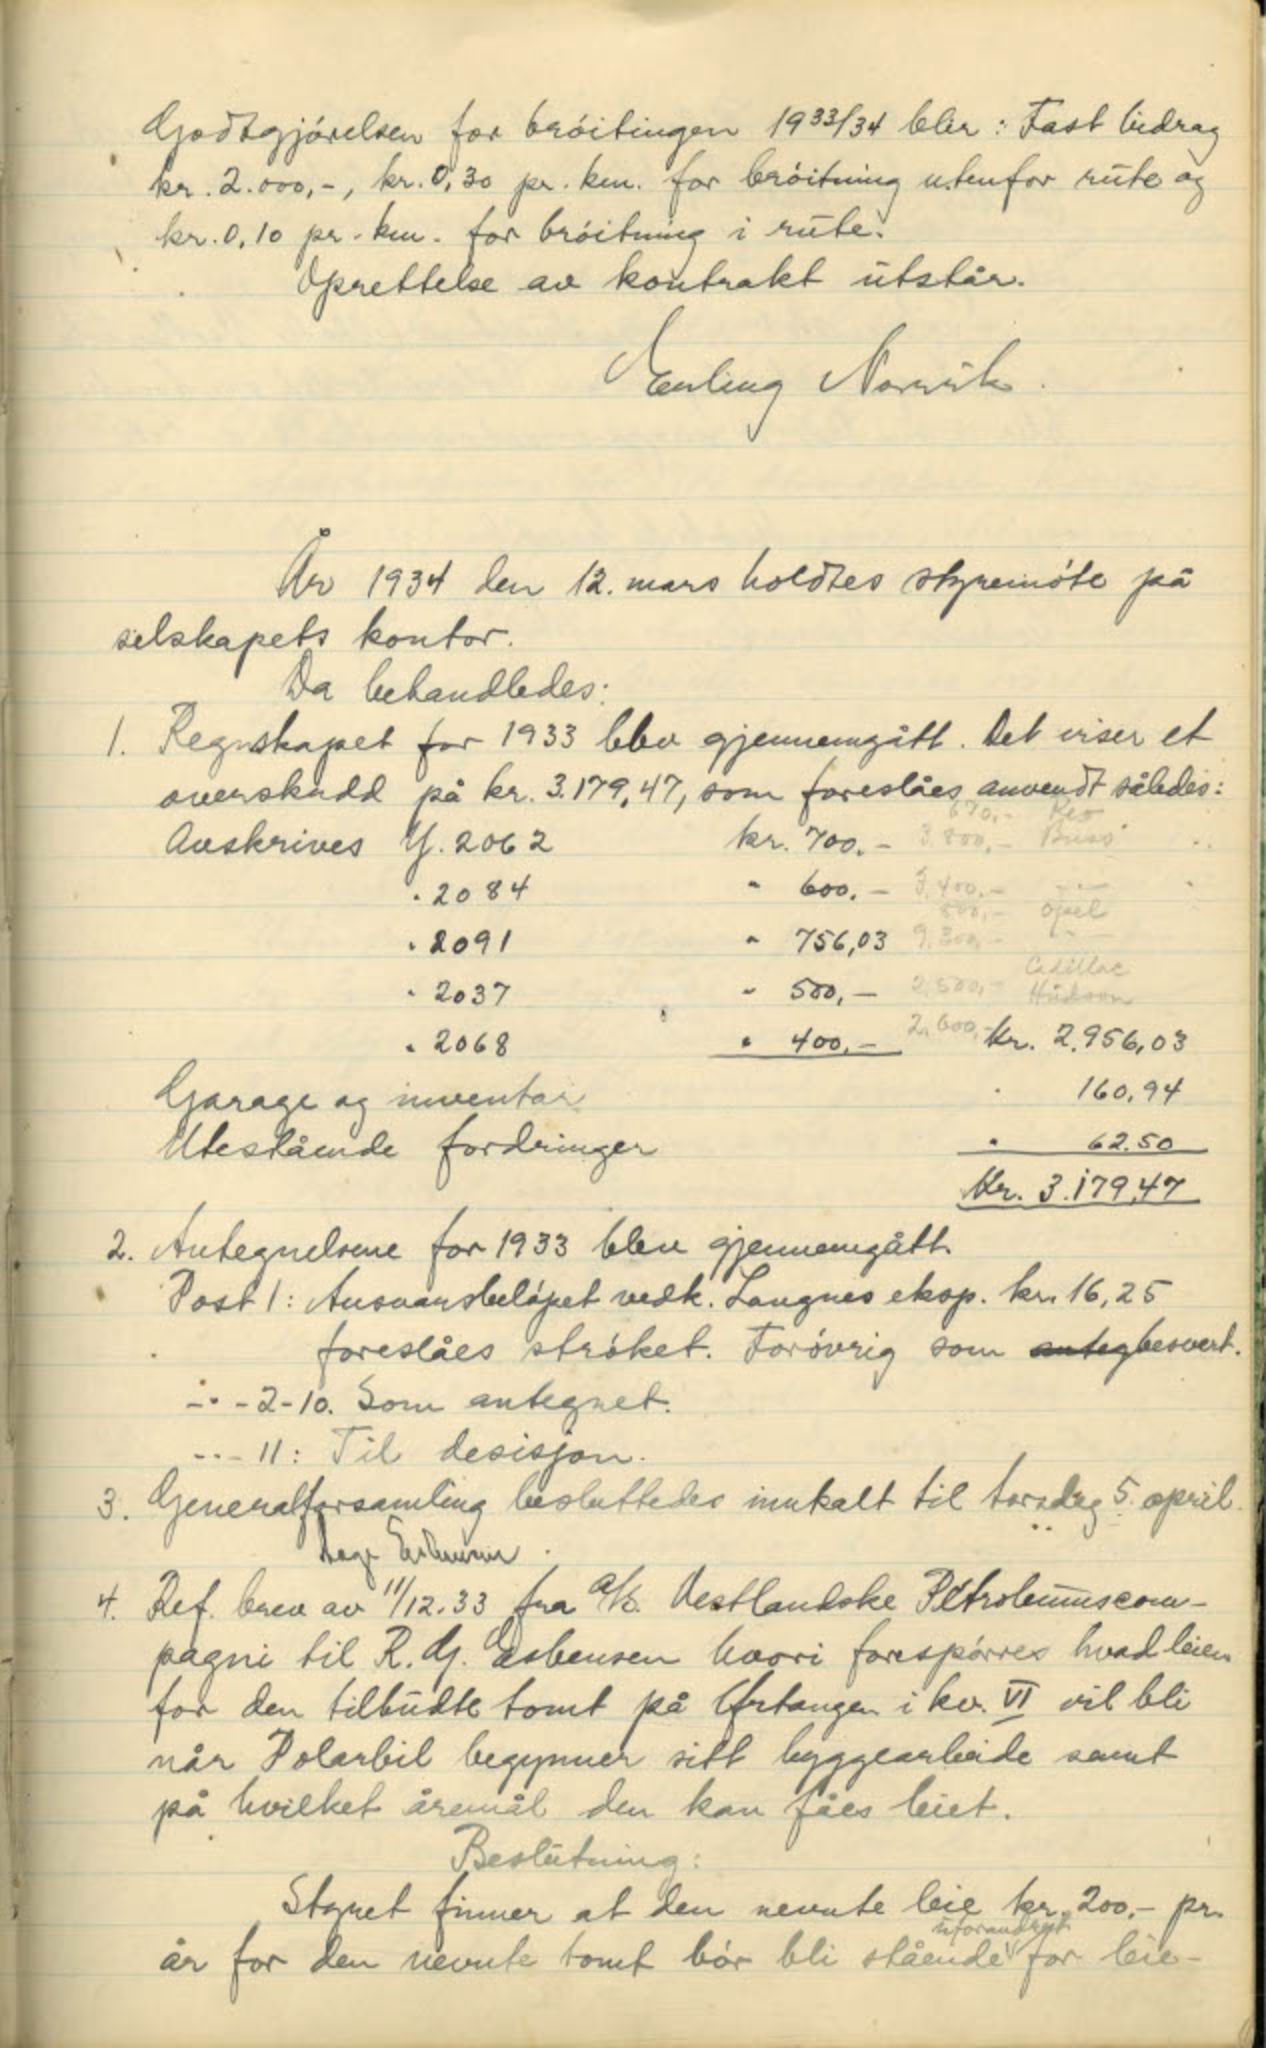 Godtgjórelsen for bróitingen 1933/34 blir: Fast bidrag
kr. 2.000,-, kr. 0,30 pr. km. for bróitning utenfor rute og
kr. 0,10 pr. km. for bróitning i rute.
Oprettelse av kontrakt utstår.
Erling Norvik.
År 1934 den 12. mars holdtes styremóte på
selskapets kontor.
Da behandledes:
1. Regnskapet for 1933 blev gjennemgått. Det viser et
overskudd på kr. 3.179,47, som foreslåes anvendt således:
670,- Reo
Avskrives Y. 2062 kr. 700.- 3.800,- Buss
" 2084 " 600.- 3.400.- -"-
500,- Opel
" 2091 " 756,03 9.300,- -"-
Cadillac
" 2037 " 500,- 2.500,- Hudson
" 2068 " 400.- 2.600,- Kr. 2.956,03
Garage og inventar " 160.94
Utestående fordringer " 62.50
Kr. 3.179,47
2. Antegnelsene for 1933 blev gjennemgått.
Post 1: Ansvarsbelópet vedk. Langnes eksp. kr. 16,25
foreslåes stróket. Foróvrig som anteg besvart.
-"- 2-10. Som antegnet.
-"- 11: Til desisjon.
3. Generalforsamling besluttedes innkalt til torsdag 5. april.
4. Ref. brev av 11/12.33 fra a/s. Vestlandske Petroleumscom-
pagni til R. G. Esbensen hvori forespórres hvad leien
for den tilbudte tomt på Ørtangen i kv. VI vil bli
når Polarbil begynner sitt byggearbeide samt
på hvilket åremål den kan fåes leiet.
Beslutning:
Styret finner at den nevnte leie kr. 200.- pr.
uforandret
år for den nevnte tomt bór bli stående for leie-